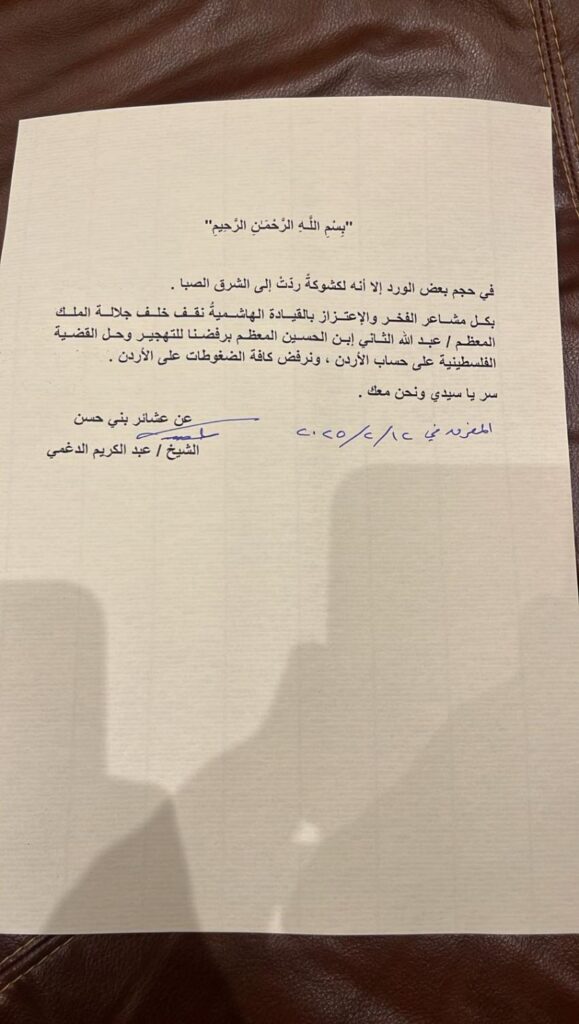 "بِسْمِ اللَّـهِ الرَّحْمَـٰنِ الرَّحِيمِ"
في حجم بعض الورد إلا أنه لكشوكةٌ ردّتْ إلى الشرق الصبا .
بكل مشـاعر الفخـر والإعتـزاز بالقيـادة الهاشـميةُ نقـف خلـف جلالـة الملـك
المعظـم / عبـد الله الثـاني إبـن الحسـين المعظـم برفضـنا للتهجيـر وحـل القضـية
الفلسطينية على حساب الأردن ، ونرفض كافة الضغوطات على الأردن .
سر يا سيدي ونحن معك .
عن عشائر بني حسن
المفرق في ٢٠٢٥/٢/١٢
الشيخ / عبد الكريم الدغمي